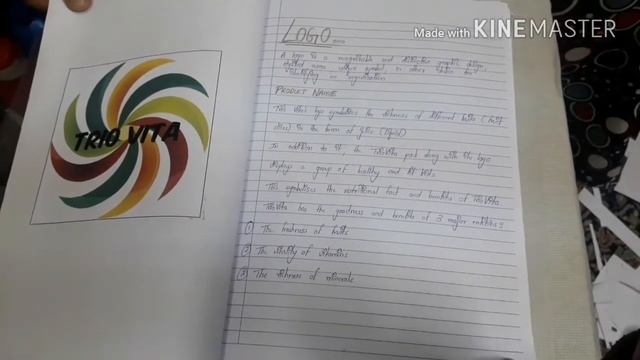 Made with KINEMASTER
TRIO VITA
LOGO
A logo is a recognizable and distinctive graphic design,
stylized name symbol or other
identifying an organization
PRODUCT NAME
Trio Vita logo symbolises the richness of different
in the form of (liquid)
In addition to it, the TrioVita pack along with the logo
displays a group of healthy and fit kids
This symbolises the nutritional fact and benefits of TrioVita
TrioVita has the goodness and benefits of 3 major
1 The freshness of fruits
2 The vitality of vitamins
3 The richness of minerals